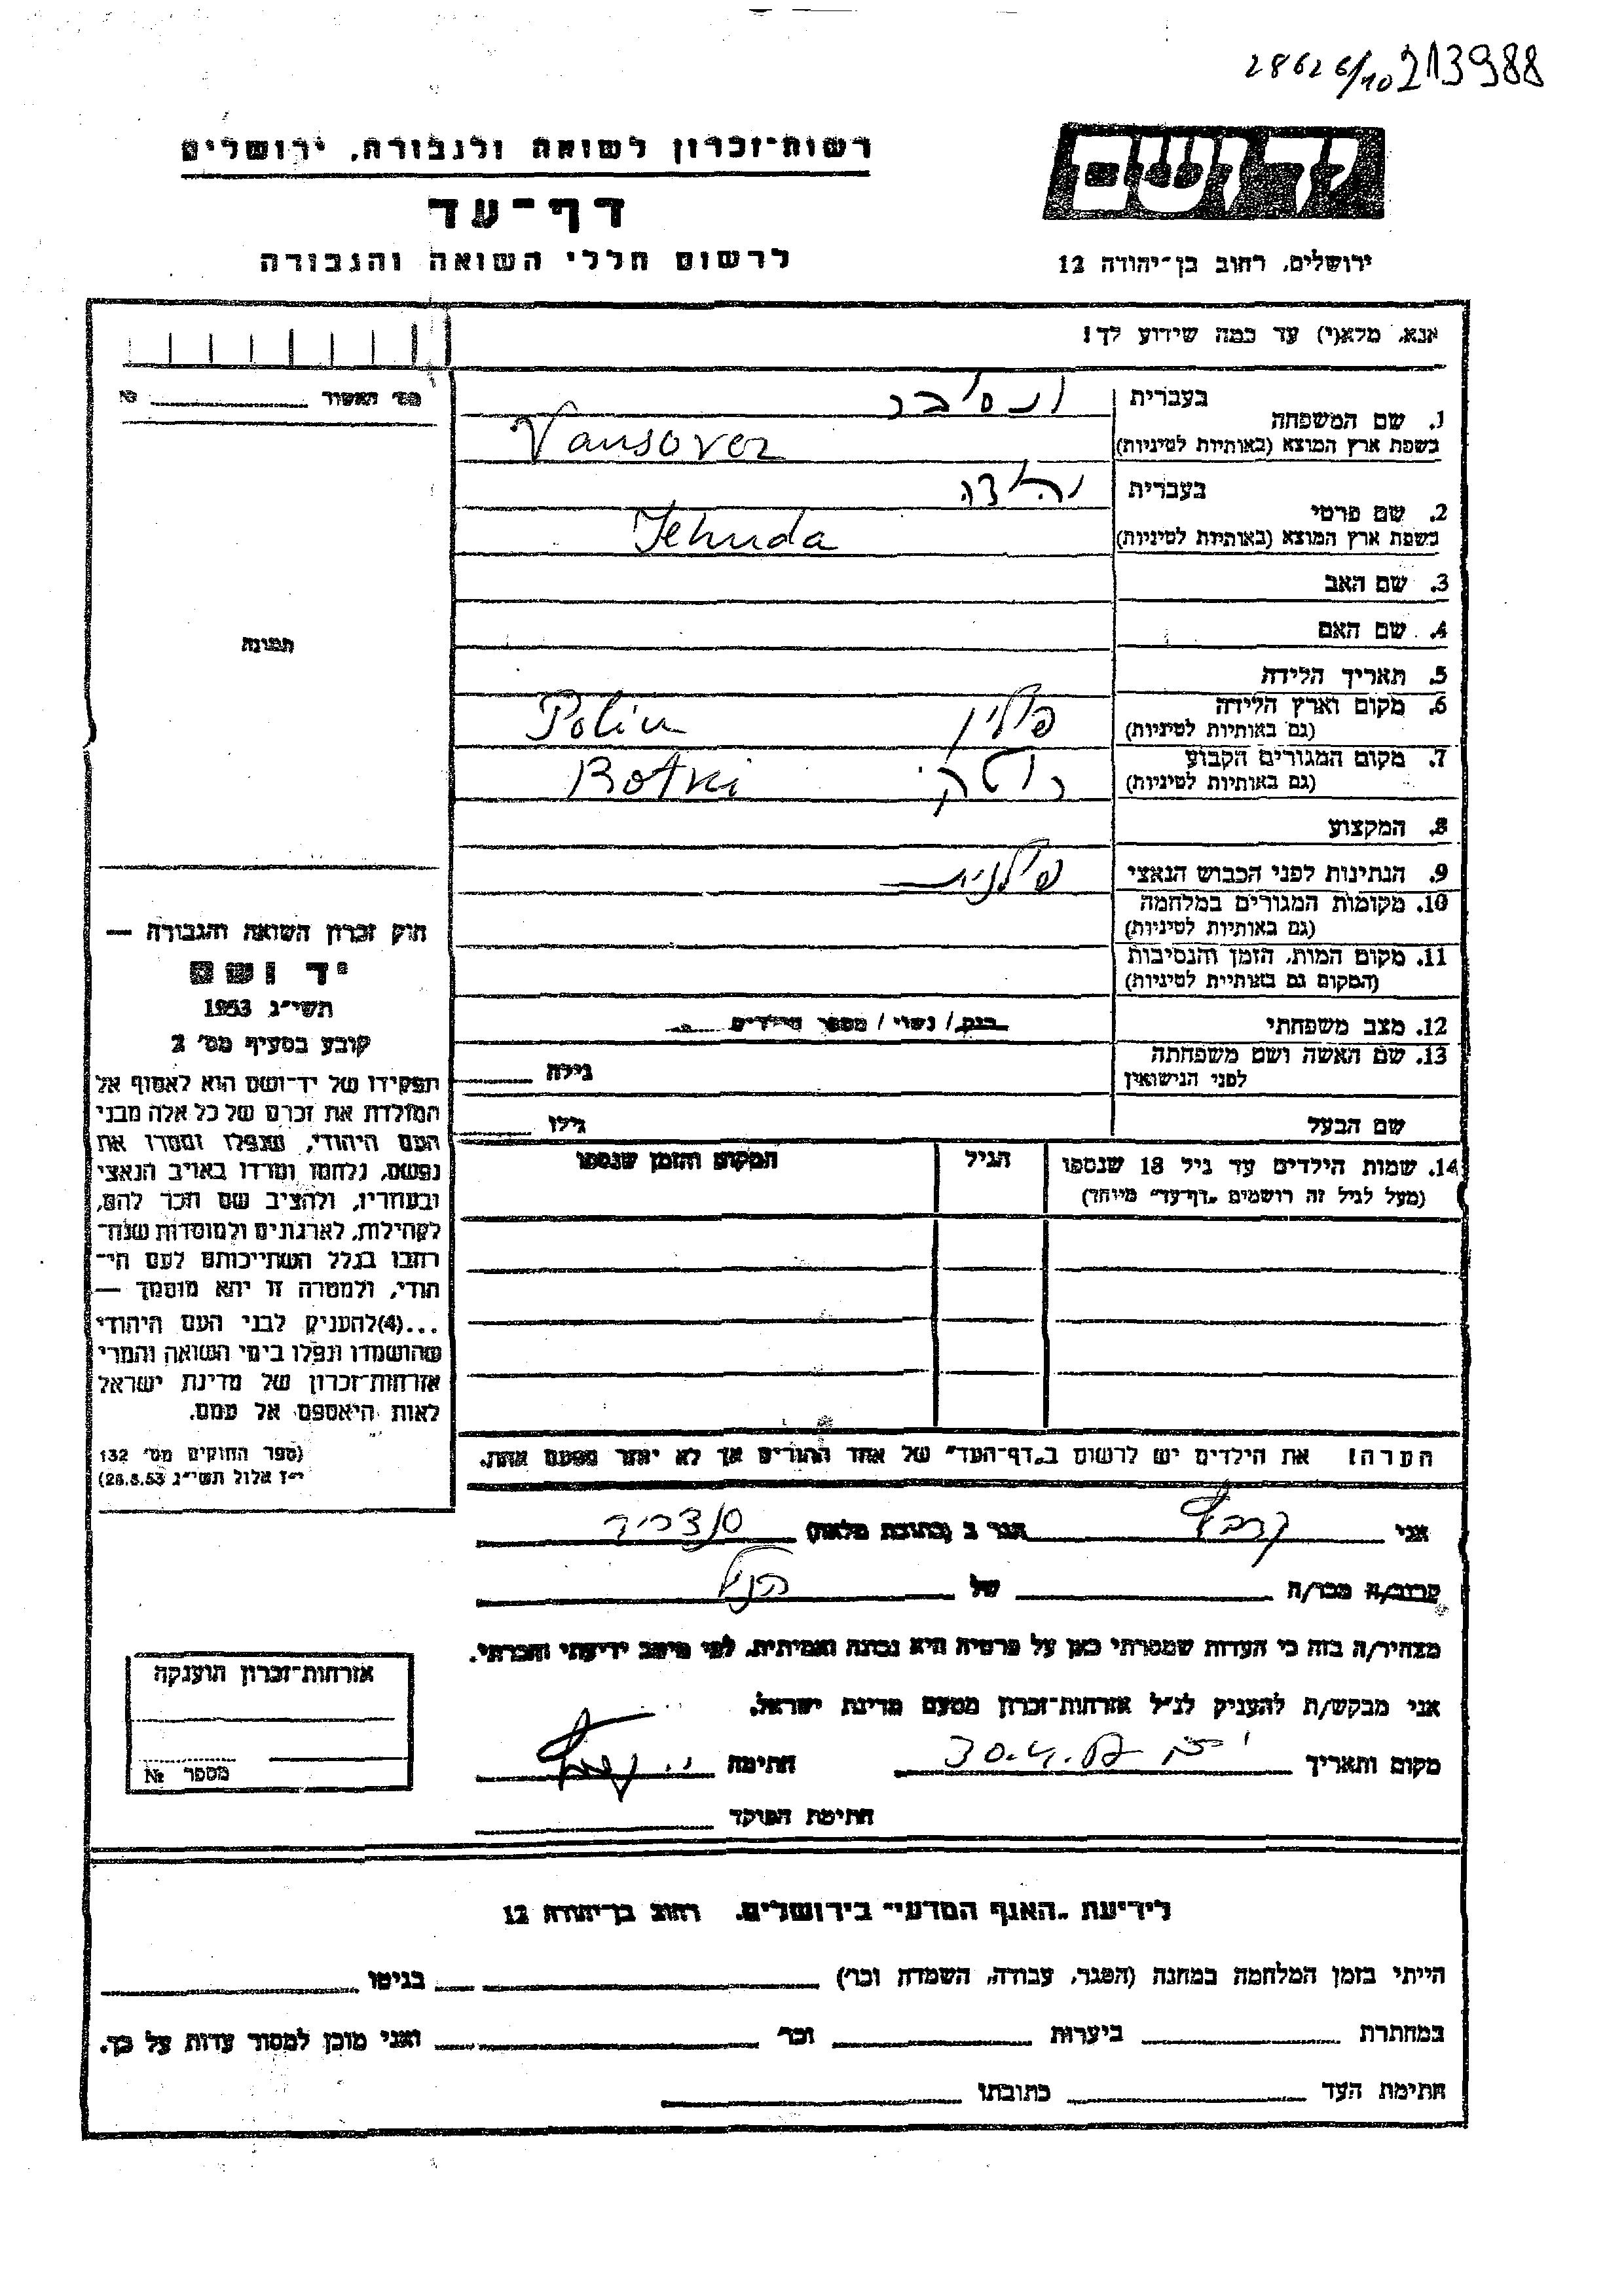 28626/10 213988
יד ושם
ירושלים, רחוב בן־יהודה 12
רשות־זכרון לשואה ולגבורה, ירושלים
דף־עד
לרשום חללי השואה והגבורה
אנא, מלא(י) עד כמה שידוע לך!
מס׳ האשור № 
1. שם המשפחה
בעברית ונסובר
בשפת ארץ המוצא (באותיות לטיניות) Vansover
2. שם פרטי
בעברית יהודה
בשפת ארץ המוצא (באותיות לטיניות) Jehuda
3. שם האב
4. שם האם
5. תאריך הלידה
6. מקום וארץ הלידה
(גם באותיות לטיניות) פולין Polin
7. מקום המגורים הקבוע
(גם באותיות לטיניות) רוטקי Rotki
8. המקצוע
9. הנתינות לפני הכבוש הנאצי פולנית
10. מקומות המגורים במלחמה
(גם באותיות לטיניות)
11. מקום המות, הזמן והנסיבות
(המקום גם באותיות לטיניות)
12. מצב משפחתי רווק/ נשוי/ מספר הילדים
13. שם האשה ושם משפחתה
לפני הנישואין גילה
שם הבעל גילו
14. שמות הילדים עד גיל 18 שנספו
(מעל לגיל זה רושמים "דף־עד" מיוחד)
הגיל
המקום והזמן שנספו
הערה! את הילדים יש לרשום ב"דף־העד" של אחד ההורים אך לא יותר מפעם אחת.
תמונה
חוק זכרון השואה והגבורה —
יד ושם
תשי״ג 1953
קובע בסעיף מס׳ 2
תפקידו של יד־ושם הוא לאסוף אל
המולדת את זכרם של כל אלה מבני
העם היהודי, שנפלו ומסרו את
נפשם, נלחמו ומרדו באויב הנאצי
ובעוזריו, ולהציב שם וזכר להם,
לקהילות, לארגונים ולמוסדות שנח־
רבו בגלל השתייכותם לעם הי־
הודי, ולמטרה זו יהא מוסמך —
...(4) להעניק לבני העם היהודי
שהושמדו ונפלו בימי השואה והמרי
אזרחות־זכרון של מדינת ישראל
לאות היאספם אל עמם.
(ספר החוקים מס׳ 132
י״ז אלול תשי״ג 28.8.53)
אני הגר ב (כתובת מלאה)
קרוב/ה מכר/ה של הנ״ל
מצהיר/ה בזה כי העדות שמסרתי כאן על פרטיה היא נכונה ואמיתית, לפי מיטב ידיעתי והכרתי.
אני מבקש/ת להעניק לנ״ל אזרחות־זכרון מטעם מדינת ישראל.
מקום ותאריך חתימה
חתימת הפוקד
אזרחות־זכרון הוענקה
מספר №
לידיעת "האגף המדעי" בירושלים, רחוב בן־יהודה 12
הייתי בזמן המלחמה במחנה (הסגר, עבודה, השמדה וכו׳) בגיטו
במחתרת ביערות וכו׳ ואני מוכן למסור עדות על כך.
חתימת העד כתובתו